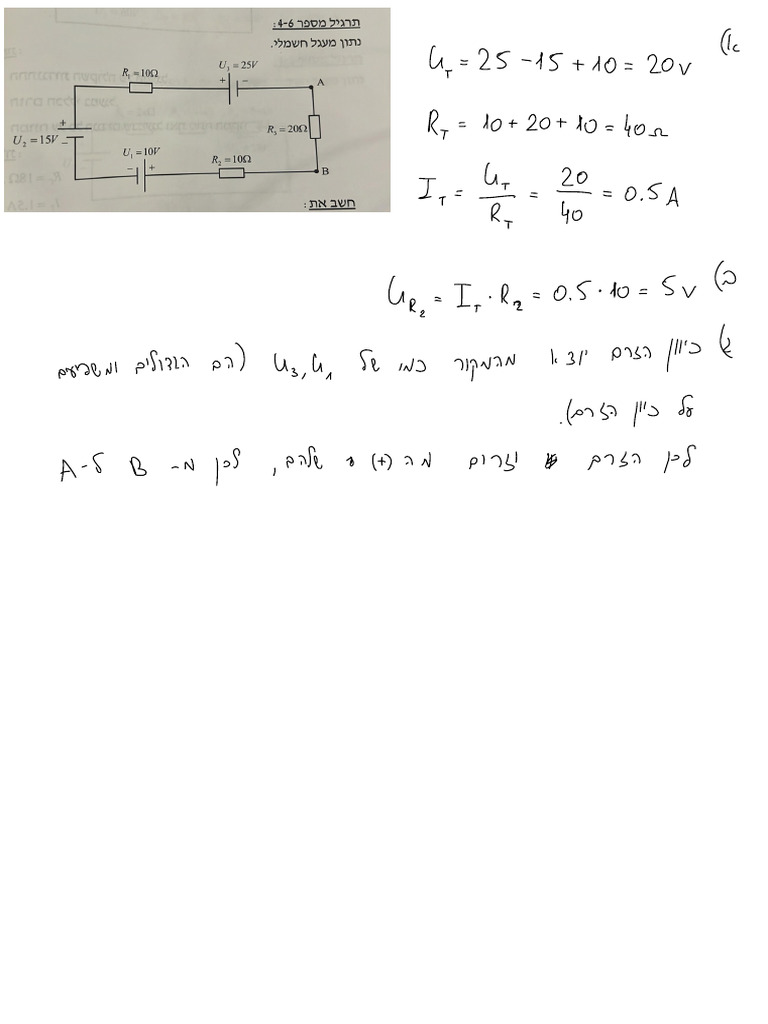 תרגיל מספר 4-6:
נתון מעגל חשמלי.
R₁ = 10Ω
U₃ = 25V
+ −
A
+
U₂ = 15V
−
R₃ = 20Ω
U₁ = 10V
− +
R₂ = 10Ω
B
חשב את:
א) U_T = 25 − 15 + 10 = 20 V
R_T = 10 + 20 + 10 = 40 Ω
I_T = U_T / R_T = 20 / 40 = 0.5 A
ב) U_R₂ = I_T · R₂ = 0.5 · 10 = 5 V
ג) כיוון הזרם יוצא מהמקור כמו של U₃, U₁ (הם הגדולים ומשפיעים
על כיוון הזרם).
לכן הזרם יזרום מה (+) שלהם, לכן מ- B ל-A